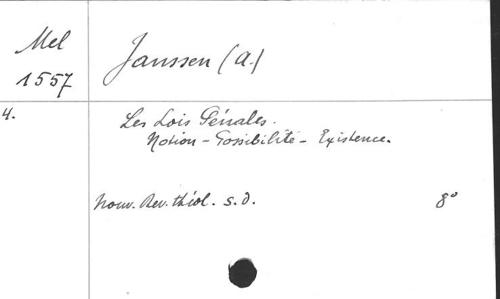 Mel
1557
Janssen (A.)
4.
Les Lois Pénales.
Notion - Possibilité - Existence.
Nouv. Rev. théol. s.d. 8°